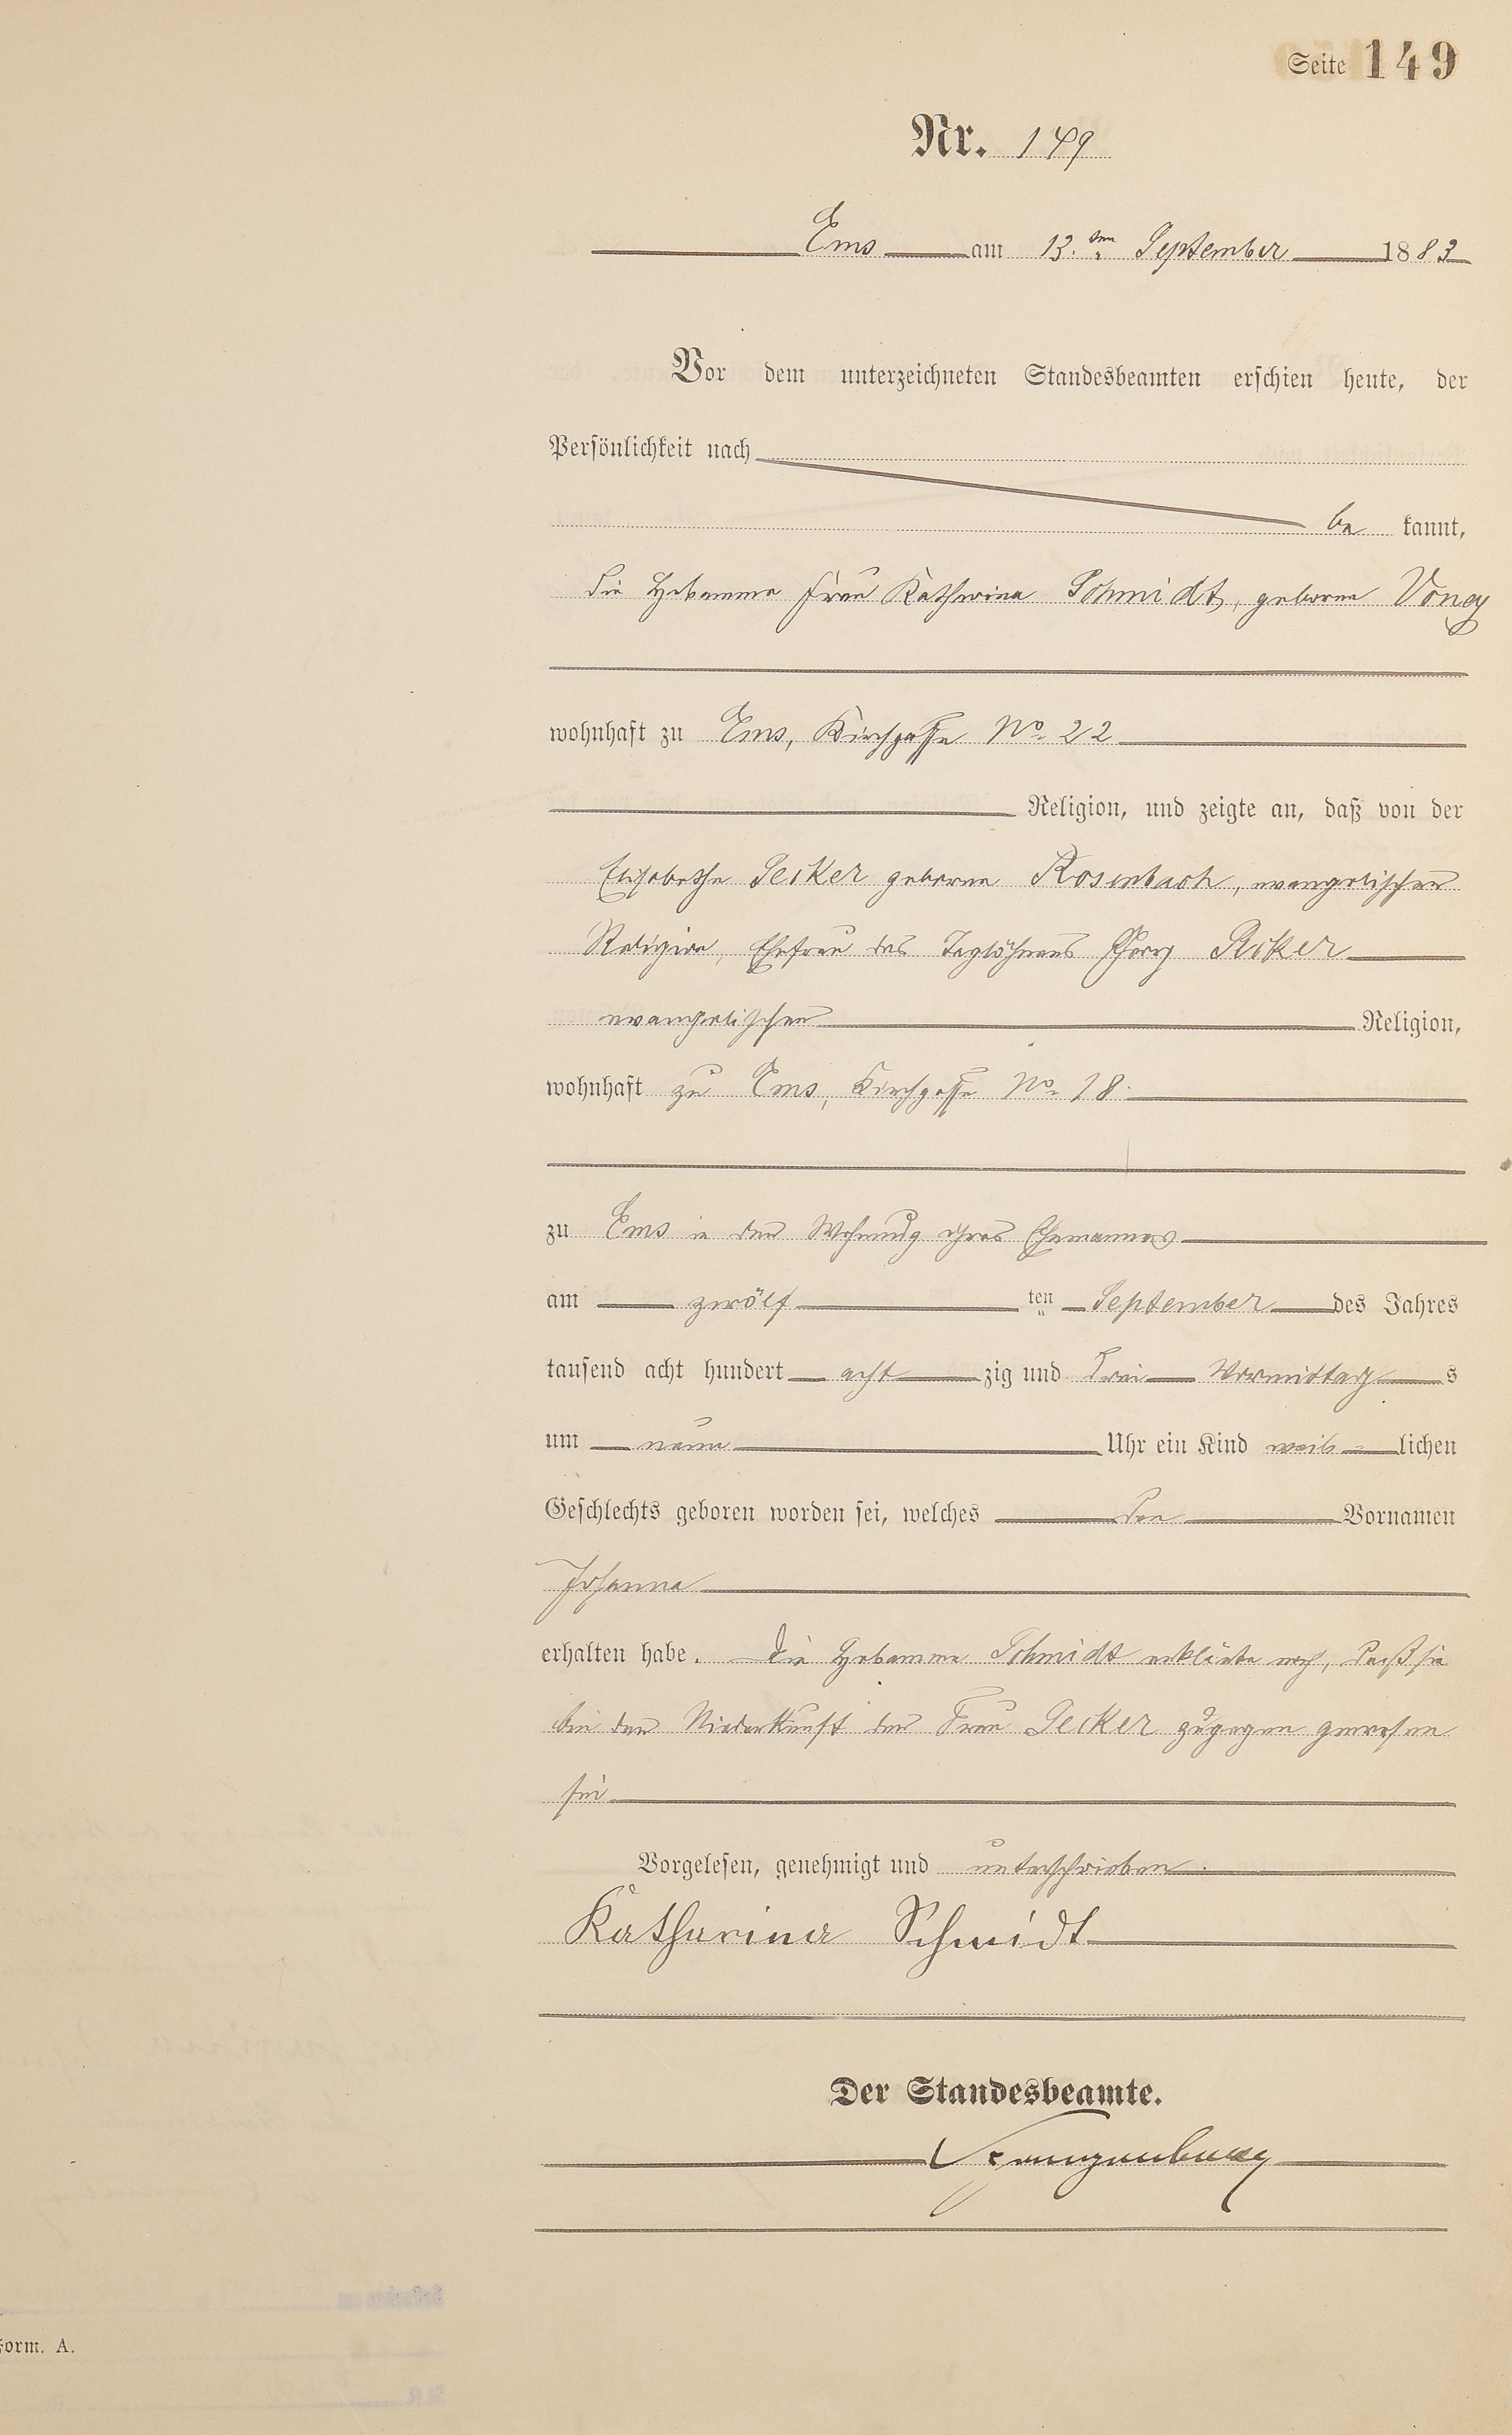 Seite 149
Nr. 149
Ems am 13.ten September 1883
Vor dem unterzeichneten Standesbeamten erschien heute, der
Persönlichkeit nach
be kannt,
die Hebamme Frau Katharina Schmidt, geborene
wohnhaft zu Ems, Kirchgasse No. 22
Religion, und zeigte an, daß von der
Elisabethe Seiker geborene Rosenbach, evangelischer
Religion, Ehefrau des Taglöhners Georg Seiker
evangelischer Religion,
wohnhaft zu Ems, Kirchgasse No. 18.
zu Ems in der Wohnung ihres Ehemannes
am zwölf ten September des Jahres
tausend acht hundert acht zig und drei Vormittag s
um neun Uhr ein Kind weib= lichen
Geschlechts geboren worden sei, welches den Vornamen
Johanna
erhalten habe. Die Hebamme Schmidt erklärte noch, daß sie
bei der Niederkunft der Frau Seiker zugegen gewesen
sei
Vorgelesen, genehmigt und unterschrieben.
Katharina Schmidt
Der Standesbeamte.
Form. A.